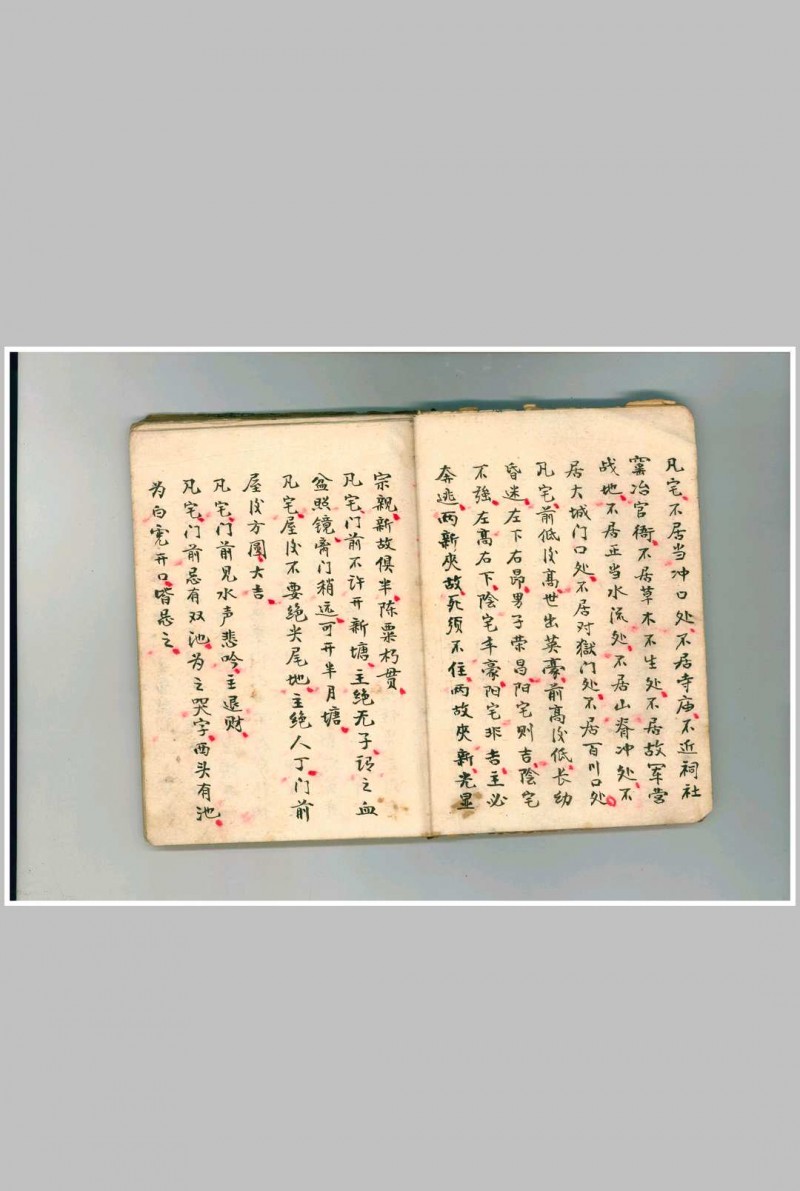 凡宅不居当冲口处不居寺庙不近祠社
窰冶官衙不居草木不生处不居故军营
战地不居正当水流处不居山脊冲处不
居大城门口处不居对獄门处不居百川口处
凡宅前低后高世出英豪前高后低长幼
昏迷左下右昂男子荣昌阳宅则吉陰宅
不強左高右下陰宅丰豪阳宅非吉主必
奔逃两新夾故死须不住两故夾新光显
宗親新故俱半陈粟朽贯
凡宅门前不许开新塘主绝无子谓之血
盆照镜门稍远可开半月塘
凡宅屋后不要绝尖尾地主绝人丁门前
屋后方圆大吉
凡宅门前见水声悲吟主退财
凡宅门前忌有双池为之哭字西头有池
为白虎开口皆忌之